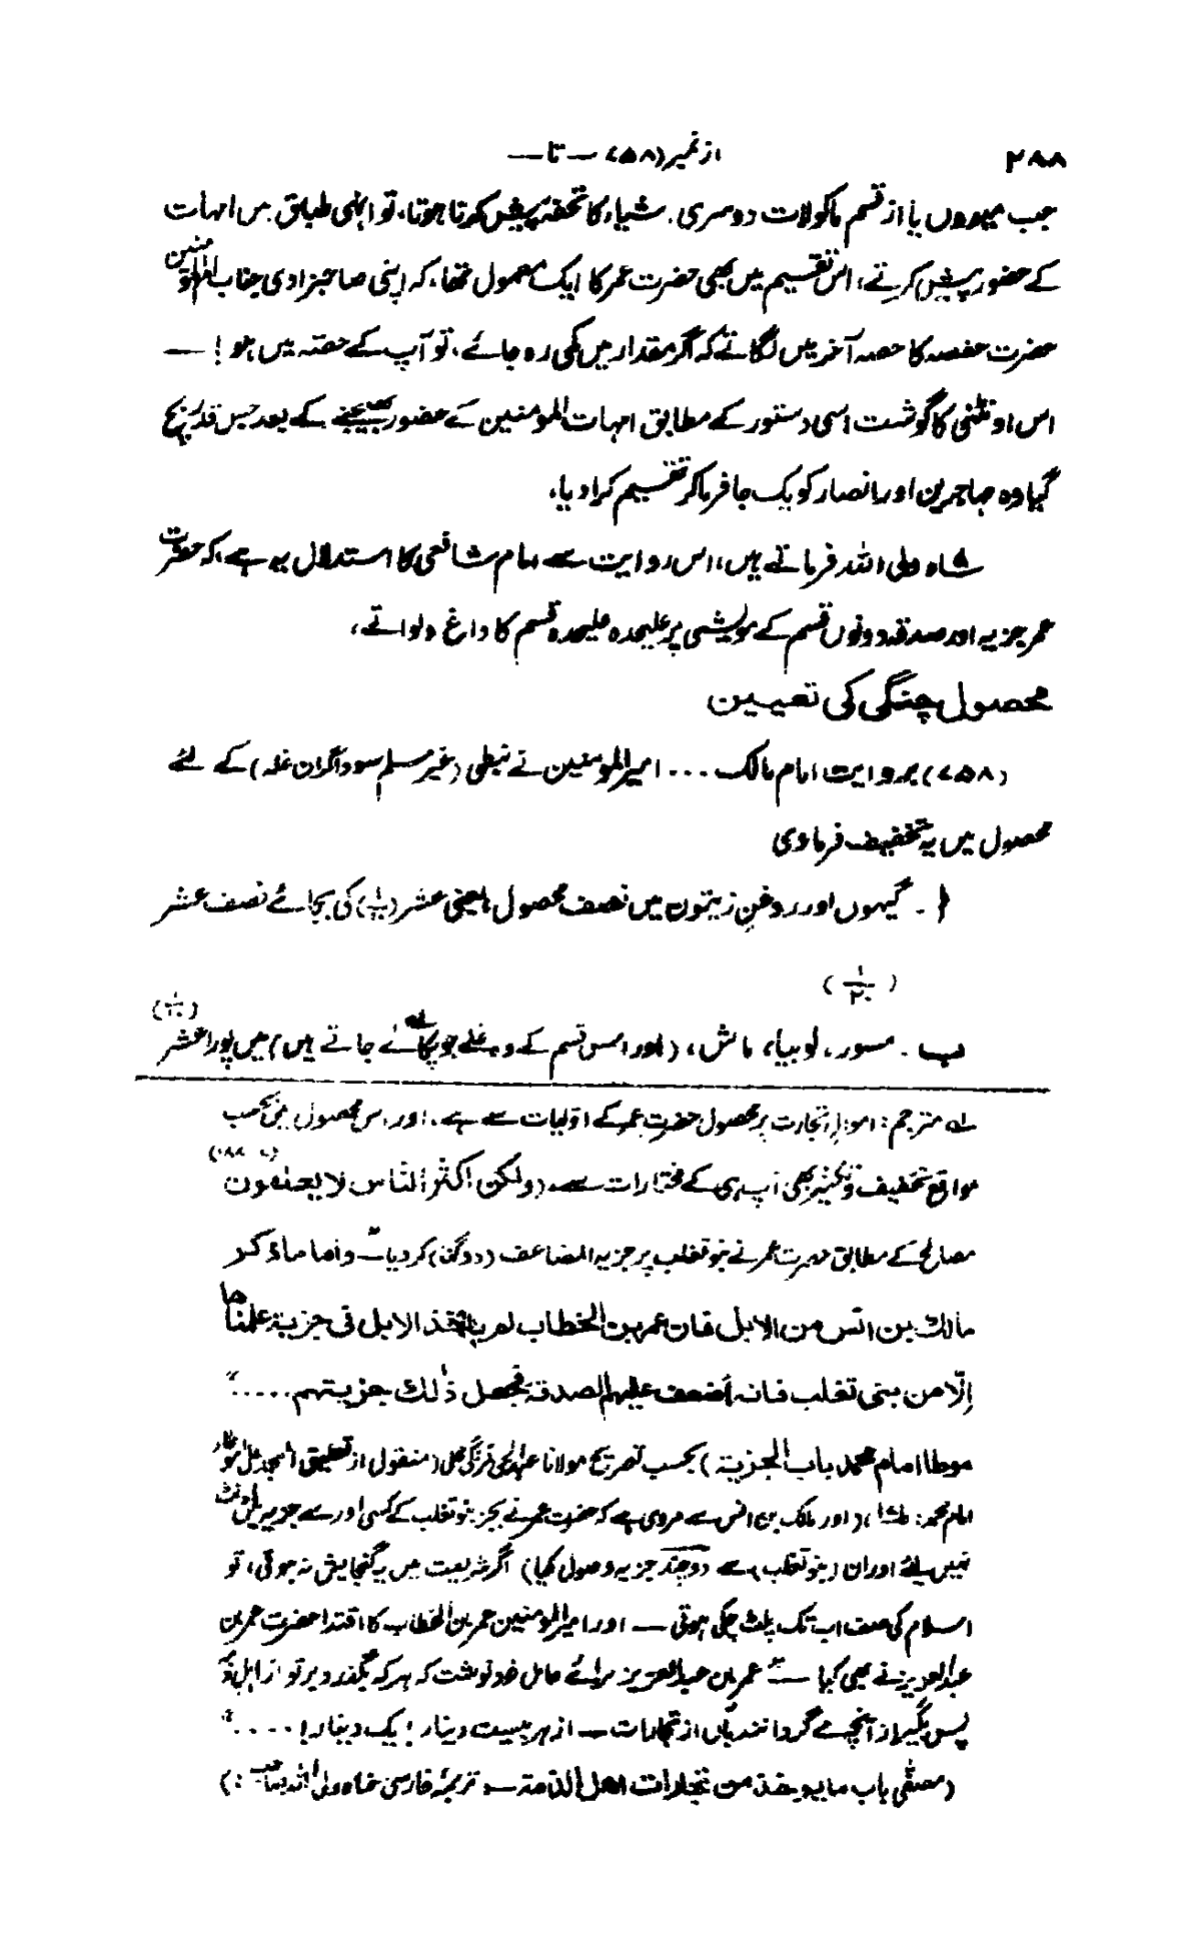 ۲۸۸ از نمبر (۷۵۸) — تا —
جب میووں یا از قسم ماکولات دوسری اشیاء کا تحفۃً پیش کرنا ہوتا، تو انہی طباق میں امہات
کے حضور پیش کرتے، اس تقسیم میں بھی حضرت عمر کا ایک معمول تھا، کہ اپنی صاحبزادی جناب ام المؤمنین
حضرت حفصہ کا حصہ آخر میں لگاتے کہ اگر مقدار میں کمی رہ جائے، تو آپ کے حصہ میں ہو! —
اس اونٹنی کا گوشت اسی دستور کے مطابق امہات المومنین کے حضور بھیجنے کے بعد جس قدر بچ
گیا وہ مہاجرین اور انصار کو یک جا فرما کر تقسیم کرا دیا،
شاہ ولی اللہ فرماتے ہیں، اس روایت سے امام شافعی کا استدلال یہ ہے، کہ حضرت
عمر جزیہ اور صدقہ دونوں قسم کے مویشی پر علیحدہ علیحدہ قسم کا داغ دلواتے،
محصول چنگی کی تعیین
(۷۵۸) بروایت امام مالک ... امیر المومنین نے نبطی (غیر مسلم سوداگران غلہ) کے لئے
محصول میں یہ تخفیف فرما دی
ا۔ گیہوں اور روغنِ زیتون میں نصف محصول یعنی عشر (۱/۱۰) کی بجائے نصف عشر
(۱/۲۰)
ب۔ مسور، لوبیا، ماش، (اور اس قسم کے وہ غلے جو پکائے جاتے ہیں) میں پورا عشر (۱/۱۰)
لہ مترجم: اموالِ تجارت پر محصول حضرت عمر کے اوّلیات سے ہے، اور اس محصول میں حسب
مواقع تخفیف و تکثیر بھی آپ ہی کے مختارات سے، (ولكن اكثر الناس لا يعلمون
مصالح کے مطابق حضرت عمر نے بنو تغلب پر جزیہ المضاعف (دوگنا) کر دیا — واما ما ذكر
مالك بن انس من الابل فان عمر بن الخطاب لم ياخذ الابل في جزية علمناها
إلّا من بني تغلب فانه أضعف عليهم الصدقة فجعل ذٰلك جزيتهم .....“
موطا امام محمد باب الجزية) بحسب تصریح مولانا عبدالحی فرنگی محلی (منقول از تعلیق الممجد علی موطا
امام محمد: ، (اور مالک بن انس سے مروی ہے کہ حضرت عمر نے بجز بنو تغلب کے کسی اور سے جزیہ میں اونٹ
نہیں لئے اور ان (بنو تغلب) سے دوچند جزیہ وصول کیا) اگر شریعت میں یہ گنجایش نہ ہوتی، تو
اسلام کی صف اب تک پلٹ چکی ہوتی — اور امیر المومنین عمر بن الخطاب کا اقتدا حضرت عمر بن
عبدالعزیز نے بھی کیا — ”عمر بن عبدالعزیز برائے عامل خود نوشت کہ ہر کہ بگذرد بر تو از اہل ذمہ
پس بگیر از آنچہ مے گردانند بآں از تجارات — از ہر بیست دینار! یک دینار! ....“
(مصفّٰی باب ما يوخذ من تجارات اهل الذمة — ترجمۂ فارسی شاہ ولی اللہ صاحب:)